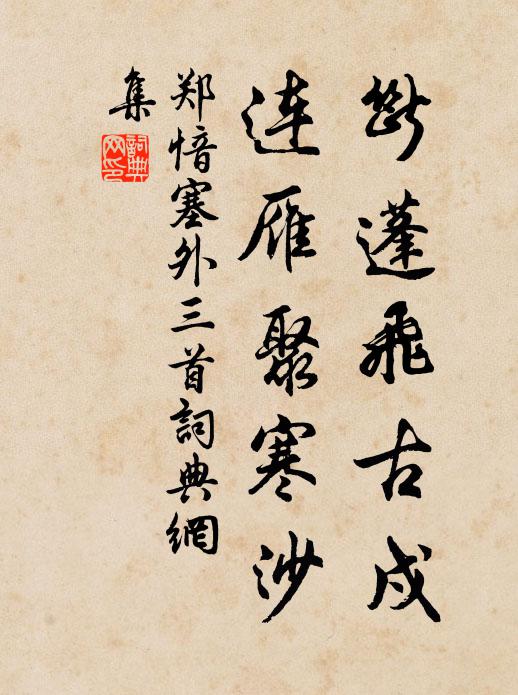 断蓬飞古戍
连雁聚寒沙
郑愔塞外三首詞典網
集
詞典
网印